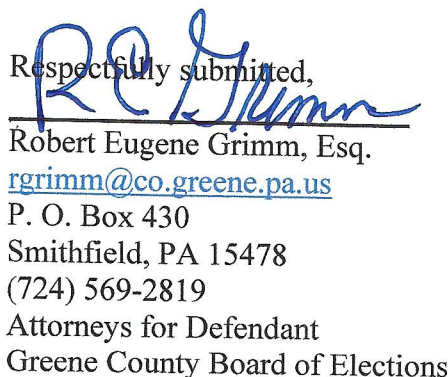 Respectfully submitted,
R E Grimm
Robert Eugene Grimm, Esq.
rgrimm@co.greene.pa.us
P. O. Box 430
Smithfield, PA 15478
(724) 569-2819
Attorneys for Defendant
Greene County Board of Elections